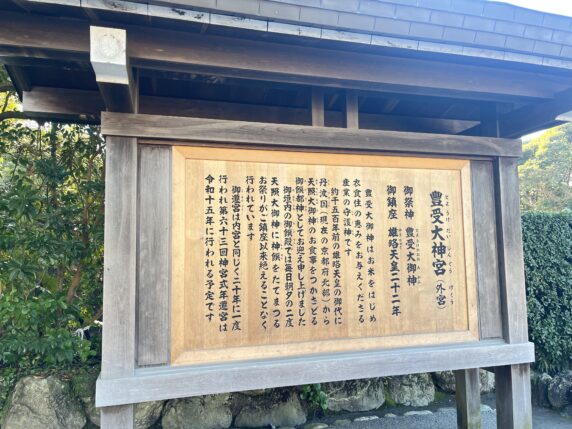 豊受大神宮（外宮）
とようけだいじんぐう　げくう
御祭神　豊受大御神
御鎮座　雄略天皇二十二年
豊受大御神はお米をはじめ
衣食住の恵みをお与えくださる
産業の守護神です
約千五百年前の雄略天皇の御代に
丹波国（現在の京都府北部）から
天照大御神のお食事をつかさどる
御饌都神としてお迎え申し上げました
御垣内の御饌殿では毎日朝夕の二度
天照大御神に神饌をたてまつる
お祭りがご鎮座以来絶えることなく
行われています
御遷宮は内宮と同じく二十年に一度
行われ第六十三回神宮式年遷宮は
令和十五年に行われる予定です